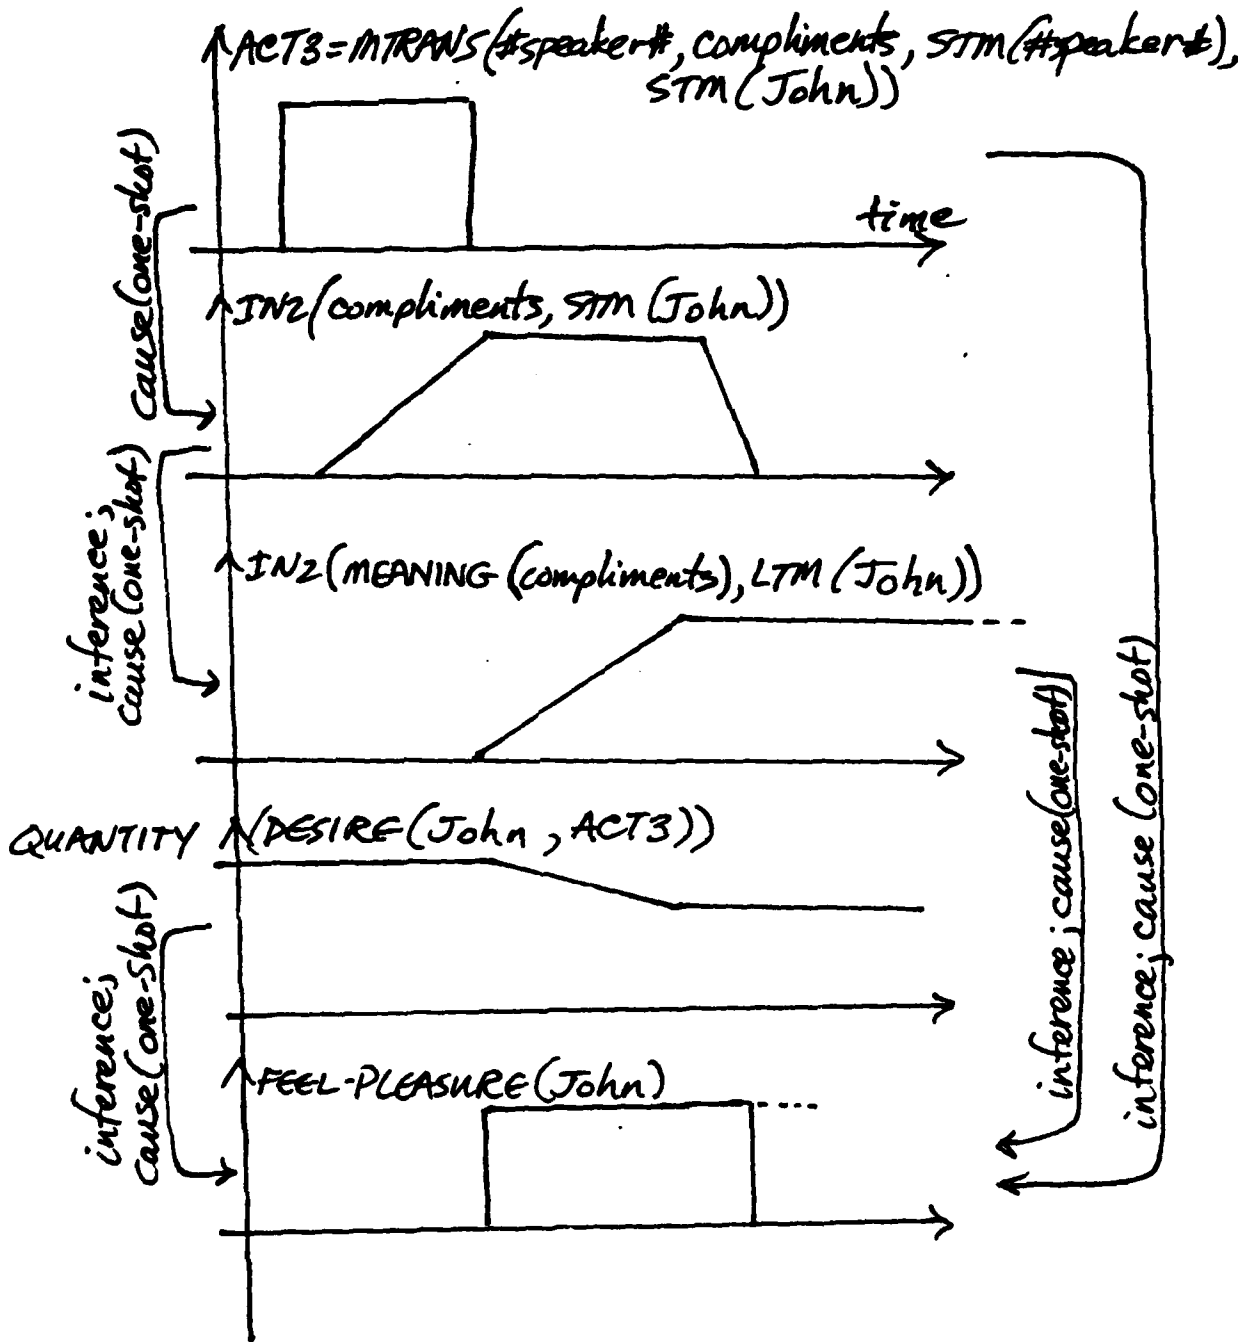 ACT3=MTRANS(#speaker#, compliments, STM(#speaker#),
STM(John))
cause(one-shot)
time
IN2(compliments, STM(John))
inference;
cause(one-shot)
IN2(MEANING(compliments), LTM(John))
QUANTITY (DESIRE(John, ACT3))
inference;
cause(one-shot)
FEEL-PLEASURE(John)
inference; cause(one-shot)
inference; cause(one-shot)